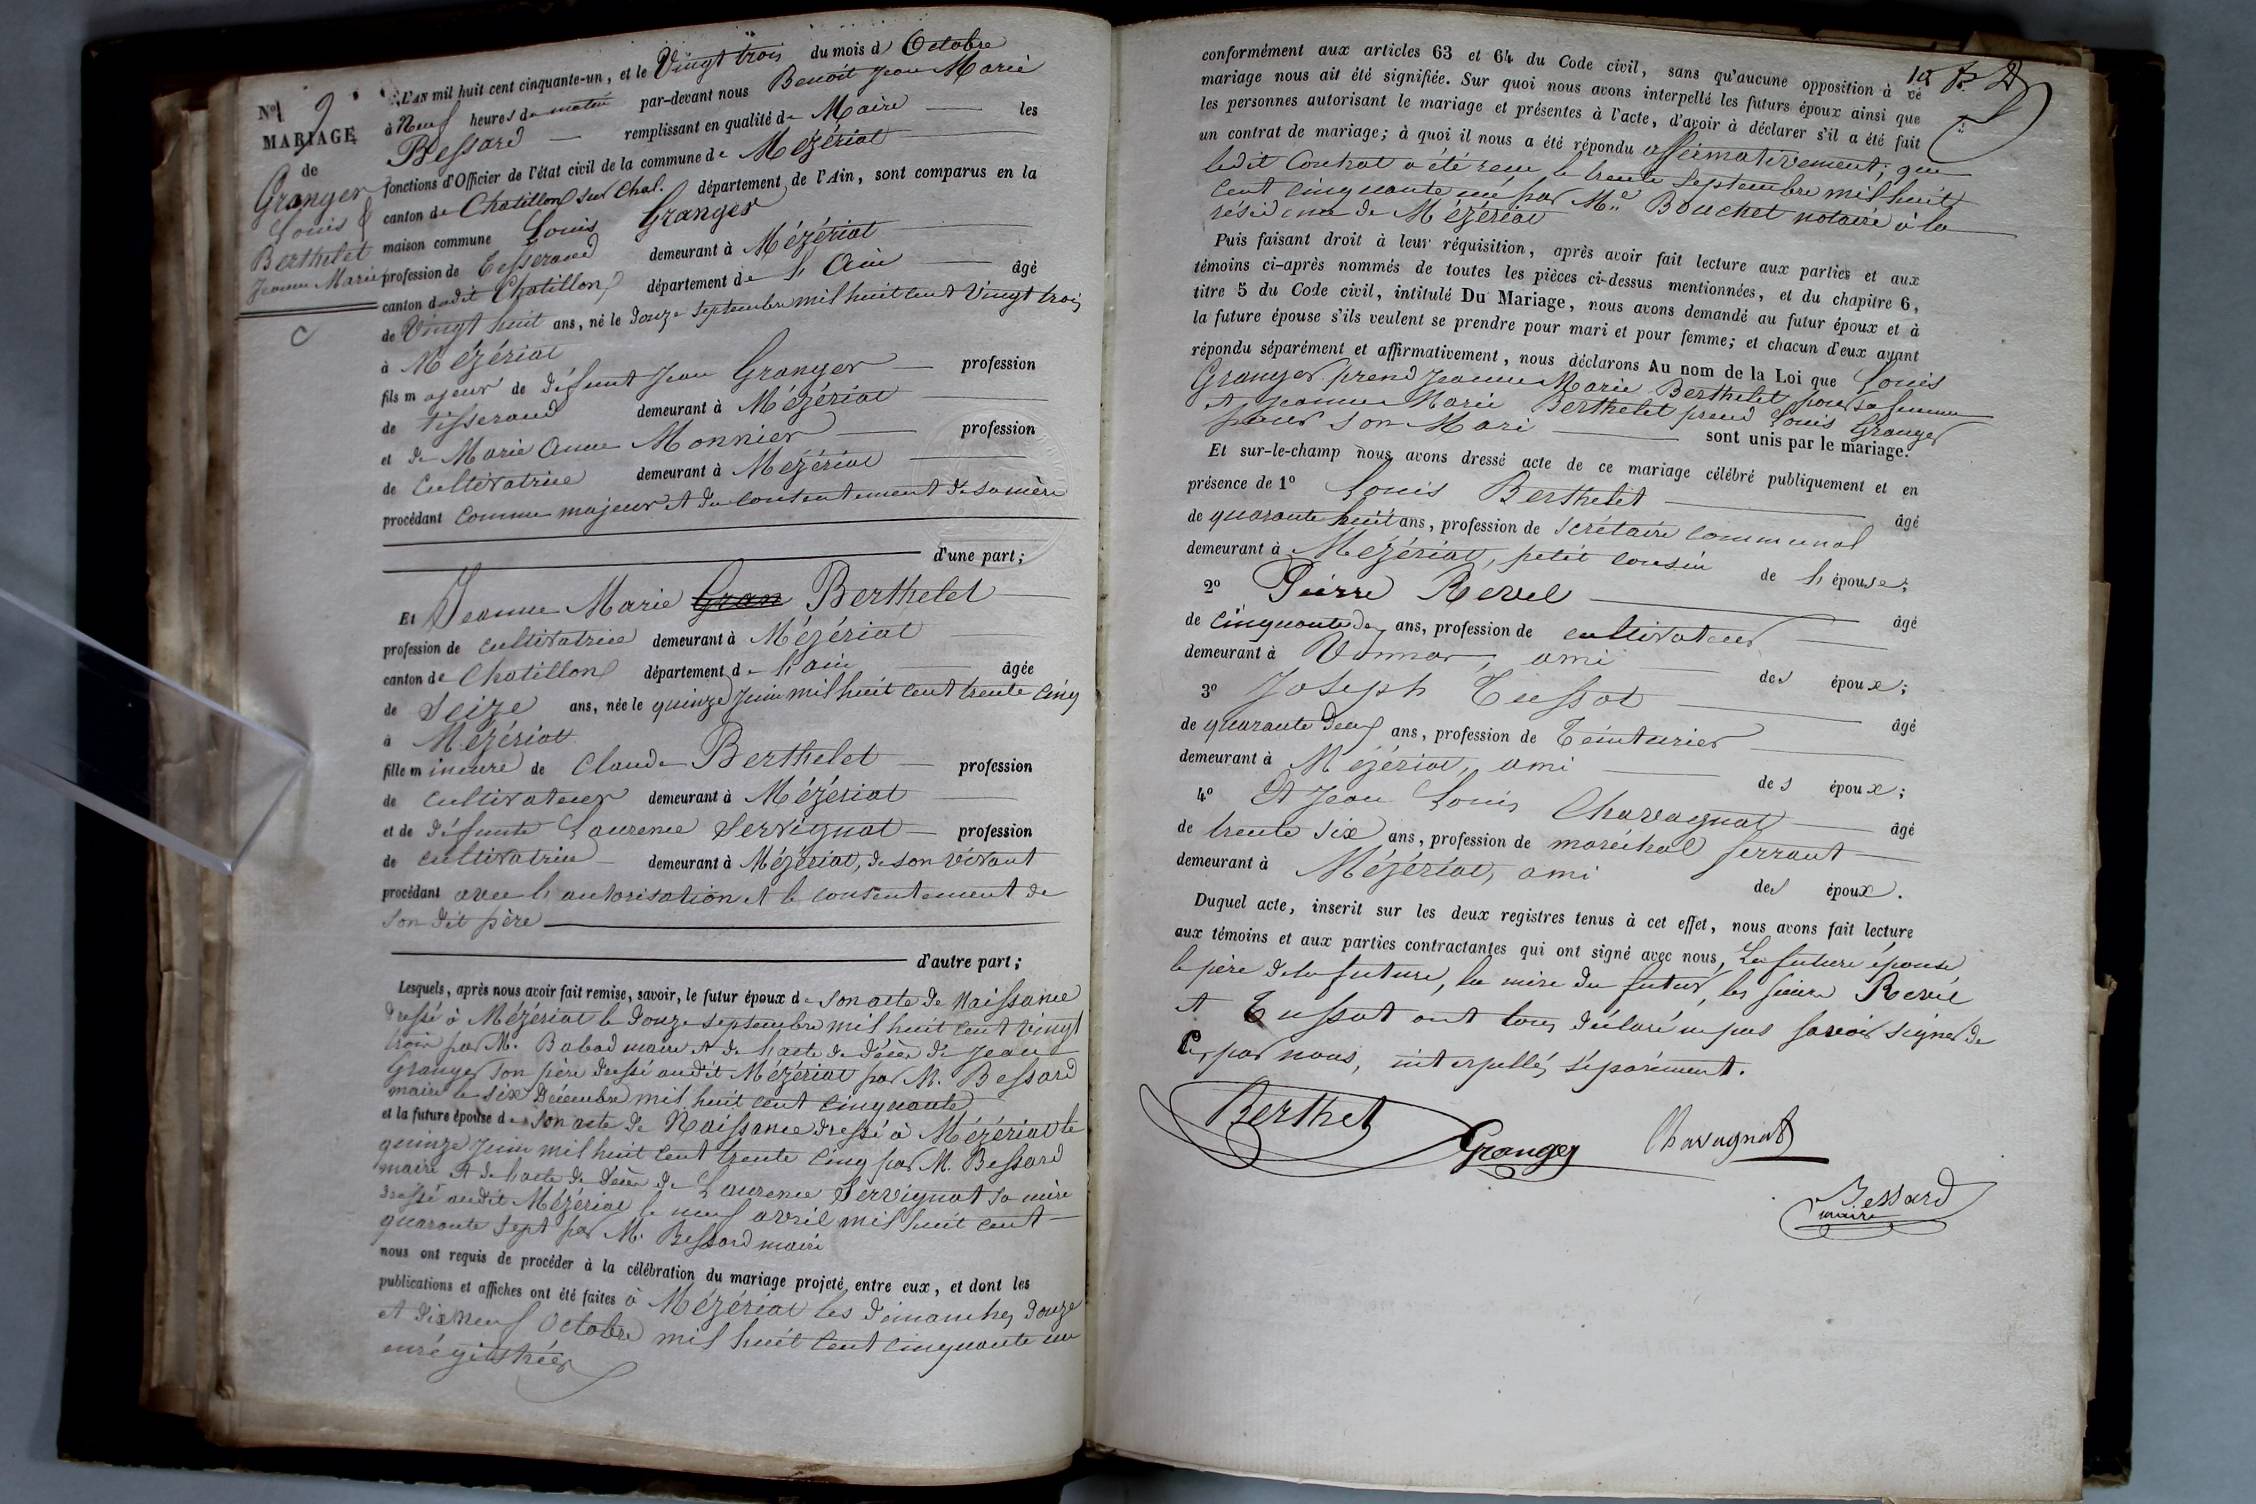 No 9
MARIAGE
de
Granger
Louis &
Berthelet
Jeanne Marie
C
L'AN mil huit cent cinquante-un, et le Vingt trois du mois d' Octobre
à Neuf heures du matin par-devant nous Benoit Jean Marie
Bessard remplissant en qualité de Maire les
fonctions d'Officier de l'état civil de la commune de Mézériat
canton de Chatillon sur Chal. département de l'Ain, sont comparus en la
maison commune Louis Granger
profession de Tesserand demeurant à Mézériat
canton dudit Chatillon département de l'Ain âgé
de Vingt huit ans, né le douze Septembre mil huit cent Vingt trois
à Mézériat
fils majeur de défunt Jean Granger profession
de tisserand demeurant à Mézériat
et de Marie Anne Monnier profession
de Cultivatrice demeurant à Mézériat
procédant comme majeur et du contentement de sa mère
d'une part;
Et Jeanne Marie Gran Berthelet
profession de cultivatrice demeurant à Mézériat
canton de Chatillon département de l'ain âgée
de Seize ans, née le quinze Juin mil huit cent trente cinq
à Mézériat
fille mineure de Claude Berthelet profession
de cultivateur demeurant à Mézériat
et de défunte Laurence Servignat profession
de cultivatrice demeurant à Mézériat, de son vivant
procédant avec l'autorisation et le consentement de
son dit père
d'autre part;
Lesquels, après nous avoir fait remise, savoir, le futur époux de son acte de Naissance
dressé à Mézériat le douze septembre mil huit cent vingt
trois par M. Babad maire et de l'acte de décès de Jean
Granger son père dressé audit Mézériat par M. Bessard
maire le six Décembre mil huit cent cinquante
et la future épouse de son acte de Naissance dressé à Mézériat le
quinze Juin mil huit cent trente cinq par M. Bessard
maire et de l'acte de décès de Laurence Servignat sa mère
dressé audit Mézériat le neuf avril mil huit cent
quarante sept par M. Bessard maire
nous ont requis de procéder à la célébration du mariage projeté entre eux, et dont les
publications et affiches ont été faites à Mézériat les dimanches douze
et dix neuf Octobre mil huit cent cinquante un
enrégistrées
conformément aux articles 63 et 64 du Code civil, sans qu'aucune opposition à
mariage nous ait été signifiée. Sur quoi nous avons interpellé les futurs époux ainsi que
les personnes autorisant le mariage et présentes à l'acte, d'avoir à déclarer s'il a été fait
un contrat de mariage; à quoi il nous a été répondu affirmativement; que
ledit Contrat a été reçu le trente Septembre mil huit
cent cinquante un par Me Bouchet notaire à la
résidence de Mézériat
Puis faisant droit à leur réquisition, après avoir fait lecture aux parties et aux
témoins ci-après nommés de toutes les pièces ci-dessus mentionnées, et du chapitre 6,
titre 5 du Code civil, intitulé Du Mariage, nous avons demandé au futur époux et à
la future épouse s'ils veulent se prendre pour mari et pour femme; et chacun d'eux ayant
répondu séparément et affirmativement, nous déclarons Au nom de la Loi que Louis
Granger prend Jeanne Marie Berthelet pour sa femme
et Jeanne Marie Berthelet prend Louis Granger
pour son Mari sont unis par le mariage.
Et sur-le-champ nous avons dressé acte de ce mariage célébré publiquement et en
présence de 1o Louis Berthelet âgé
de quarante huit ans, profession de secrétaire communal
demeurant à Mézériat, petit cousin de l'épouse;
2o Pierre Revel âgé
de cinquante ans, profession de cultivateur
demeurant à Vonnas, ami des époux;
3o Joseph Tussot âgé
de quarante deux ans, profession de Teinturier
demeurant à Mézériat, ami des époux;
4o Et Jean Louis Chavagnat âgé
de trente six ans, profession de maréchal ferrant
demeurant à Mézériat, ami des époux.
Duquel acte, inscrit sur les deux registres tenus à cet effet, nous avons fait lecture
aux témoins et aux parties contractantes qui ont signé avec nous, La future épouse
le père de la future, la mère du futur, les sieurs Revel
et Tussot ont tous déclaré ne pas savoir signer de
ce, par nous, interpellés séparément.
Berthet
Granger
Chavagnat
Bessard
maire